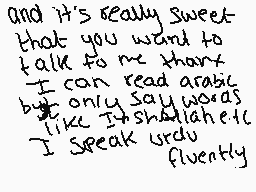 and it's really sweet
that you want to
talk to me thanx
I can read arabic
but only say words
like Inshallah e.t.c
I speak urdu
fluently